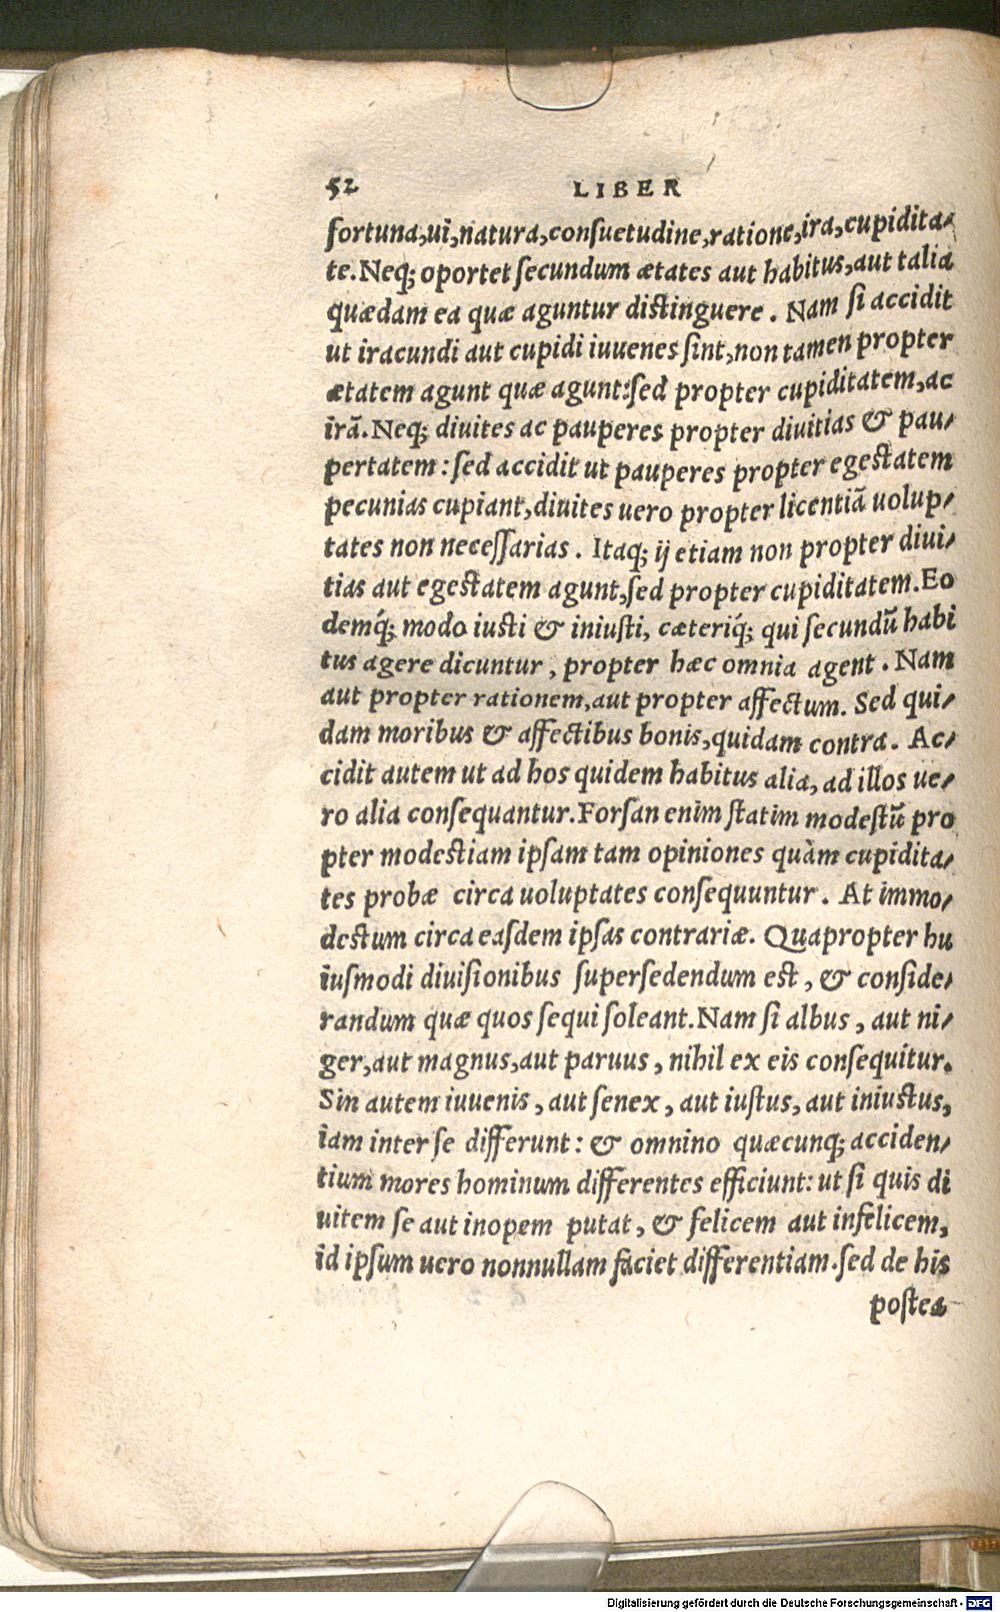 52 LIBER
fortuna, ui, natura, consuetudine, ratione, ira, cupidita-
te. Neq; oportet secundum ætates aut habitus, aut talia
quædam ea quæ aguntur distinguere. Nam si accidit
ut iracundi aut cupidi iuuenes sint, non tamen propter
ætatem agunt quæ agunt: sed propter cupiditatem, ac
irã. Neq; diuites ac pauperes propter diuitias & pau-
pertatem: sed accidit ut pauperes propter egestatem
pecunias cupiant, diuites uero propter licentiã uolup-
tates non necessarias. Itaq; ij etiam non propter diui-
tias aut egestatem agunt, sed propter cupiditatem. Eo
demq́; modo iusti & iniusti, cæteriq́; qui secundũ habi
tus agere dicuntur, propter hæc omnia agent. Nam
aut propter rationem, aut propter affectum. Sed qui-
dam moribus & affectibus bonis, quidam contra. Ac-
cidit autem ut ad hos quidem habitus alia, ad illos ue-
ro alia consequantur. Forsan enim statim modestũ pro
pter modestiam ipsam tam opiniones quàm cupidita-
tes probæ circa uoluptates consequuntur. At immo-
destum circa easdem ipsas contrariæ. Quapropter hu
iusmodi diuisionibus supersedendum est, & conside-
randum quæ quos sequi soleant. Nam si albus, aut ni-
ger, aut magnus, aut paruus, nihil ex eis consequitur.
Sin autem iuuenis, aut senex, aut iustus, aut iniustus,
iam inter se differunt: & omnino quæcunq; acciden-
tium mores hominum differentes efficiunt: ut si quis di
uitem se aut inopem putat, & felicem aut infelicem,
id ipsum uero nonnullam faciet differentiam. sed de his
postea
Digitalisierung gefördert durch die Deutsche Forschungsgemeinschaft - DFG